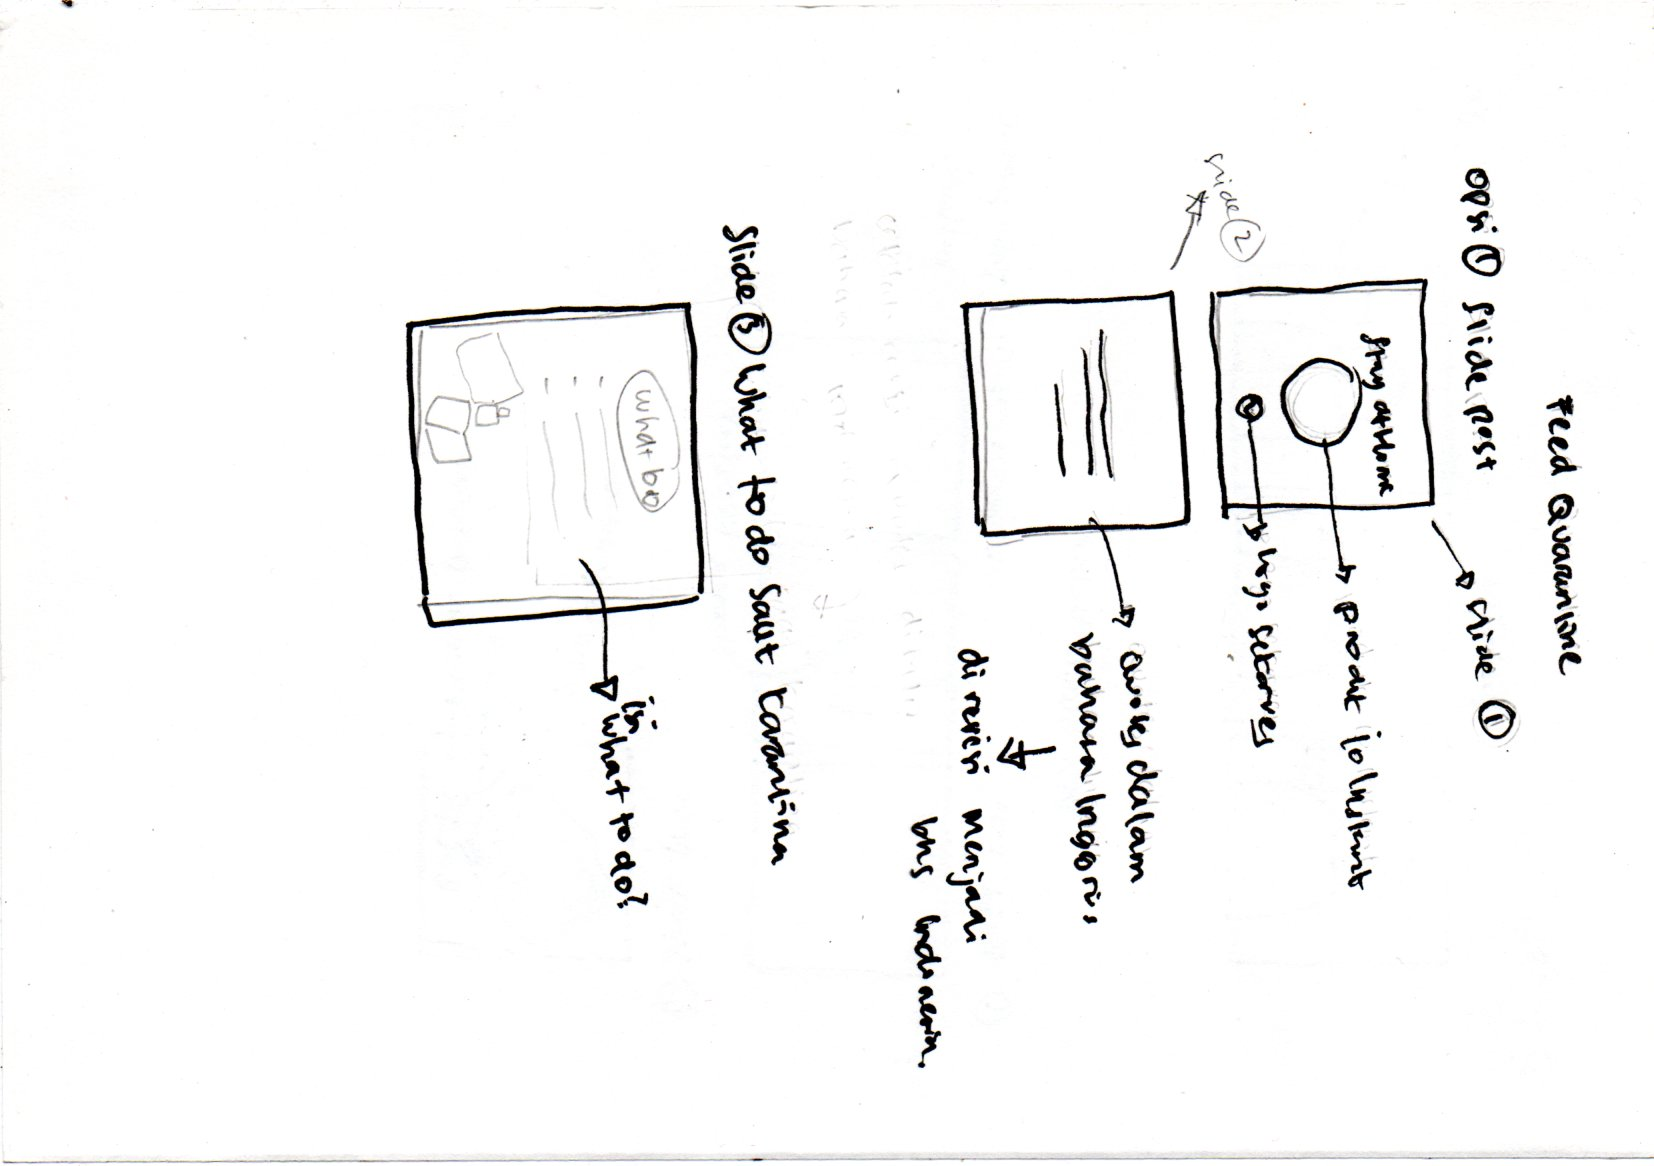 Feed Quarantine
Opsi ① Slide post
Slide ①
Stay at Home
logo
slide ②
dalam
bahasa Inggris
di revisi menjadi
bhs Indonesia.
Slide ③ What to do saat karantina
What to
isi
What to do?